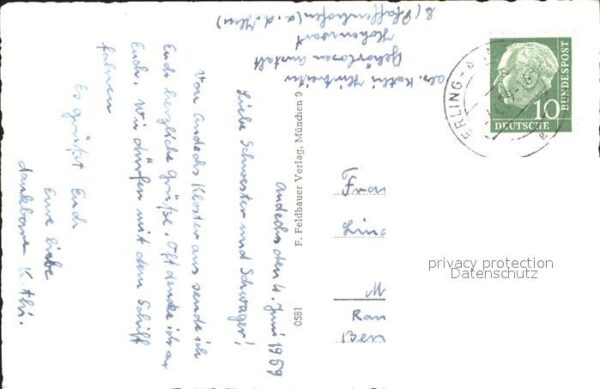 Andechs den 4. Juni 1959
Liebe Schwester und Schwager!
Von Andechs Kloster aus sende ich
Euch herzliche Grüße. Oft denke ich an
Euch. Wir dürfen mit dem Schiff
fahren
Es grüßt Euch
Eure liebe
dankbare K thi.
abs. Kathi
Gehörlosen anstalt
Hohenwart
b (Pfaffenhofen (a. d. Ilm)
F. Feldbauer Verlag, München 9
0581
ERLING-A
10
DEUTSCHE
BUNDESPOST
Frau
Lin
M
Ran
Ber
privacy protection
Datenschutz